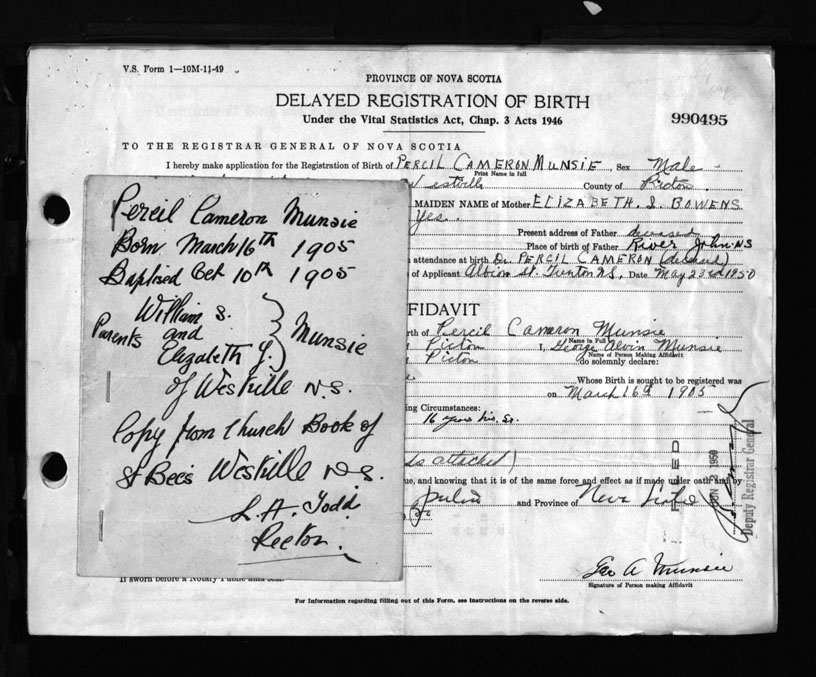 V.S. Form 1—10M-11-49
PROVINCE OF NOVA SCOTIA
DELAYED REGISTRATION OF BIRTH
Under the Vital Statistics Act, Chap. 3 Acts 1946
990495
TO THE REGISTRAR GENERAL OF NOVA SCOTIA
I hereby make application for the Registration of Birth of PERCIL CAMERON MUNSIE, Sex Male
Print Name in full
Westville County of Pictou
MAIDEN NAME of Mother ELIZABETH. J. BOWENS
Yes.
Present address of Father deceased
Place of birth of Father River John N.S
attendance at birth Dr. PERCIL CAMERON (deceased)
of Applicant Albion St. Trenton N.S, Date May 23rd 1950
Percil Cameron Munsie
Born March 16th 1905
Baptised Oct 10th 1905
William S.
Parents and Munsie
Elizabeth J.
of Westville N.S.
Copy from Church Book of
St Bees Westville N.S.
L. A. Todd
Rector.
FIDAVIT
rth of Percil Cameron Munsie
Name in Full
Pictou I, George Alvin Munsie
Name of Person Making Affidavit
Pictou do solemnly declare:
Whose Birth is sought to be registered was
on March 16th 1905
ing Circumstances:
16 years his Sr.
ds attached)
ue, and knowing that it is of the same force and effect as if made under oath and by
and Province of Nova Scotia
FILED
JUN 2 1950
Deputy Registrar General
Geo A Munsie
Signature of Person making Affidavit
If sworn before a Notary Public affix seal.
For Information regarding filling out of this Form, see Instructions on the reverse side.